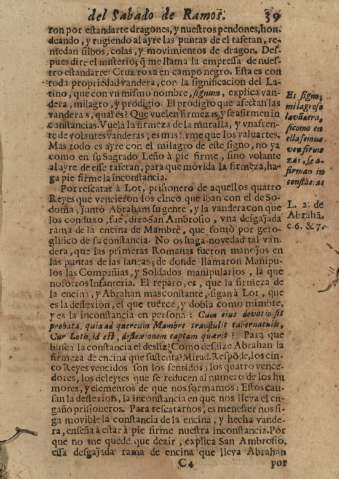 del Sabado de Ramos. 39
ron por estandarte dragones, y nuestros pendones, hon-
deando, y rugiendo al ayre las puntas de el tafetan, re-
medan silbos, colas, y movimientos de dragon. Des-
pues dire el misterio, q̃ me llama la empressa de nues-
tro estandarte: Cruz roxa en campo negro. Esta es con
toda propriedad vandera, con la significacion del La-
tino, que con vn mismo nombre, signum, explica van-
dera, milagro, y prodigio. El prodigio que afectan las
vanderas, qual es? Que vuelen firmezas, y se afirmen in
constancias. Vuela la firmeza de la muralla, y vnas fren-
te de volantes vanderas, es mas firme que los valuartes.
Mas todo es ayre con el milagro de este signo, no ya
como en su Sagrado Leño à pie firme, sino volante
al ayre de esse tafetan, para que movida la firmeza, ha-
ga pie firme la inconstancia.
Por rescatar à Lot, prisionero de aquellos quatro
Reyes que vencieron los cinco que iban con el de So-
doma, juntò Abrahan su gente, y la vandera con que
los conduxo, fue, dixo San Ambrosio, vna desgajada
rama de la encina de Mambrè, que tomò por gero-
glifico de su constancia. No os haga novedad tal van-
dera, que las primeras Romanas fueron manojos en
las puntas de las lanças; de donde llamaron Manipu-
los las Compañias, y Soldados manipularios, la que
nosotros Infanteria. El reparo, es, que la firmeza de
la encina, y Abrahan mas constante, sigan à Lot, que
es la deflexion, el que tuerce, y dobla como mimbre,
y es la inconstancia en persona: Cum eius devotio sit
probata, quia ad quercum Mambre
Cur Lotin, id est, deflexionem captam quarit? Para que
busca la constancia el desliz? Como desliza Abrahan la
firmeza de encina que sustenta? Mirad. Respõde, los cin-
co Reyes vencidos son los sentidos; los quatro vence-
dores, los deleytes que se reducen al numero de los hu-
mores, y elementos de que nos formamos: Estos cau-
san la deflexion, la inconstancia en que nos lleva el en-
gaño prisioneros. Para rescatarnos, es menester nos si-
ga movible la constancia de la encina, y hecha vande-
ra, enseña à estàr à pie firme nuestra inconstancia. Por
que no me quede que dezir, explica San Ambrosio,
essa desgajada rama de encina que lleva Abrahan
C4 por
El signo
milagroso
la vandera,
si como en
ella se mue
ven firme
zas, se a-
firman in
constãcias
L. 2. de
Abrahã,
c. 6. & 7.